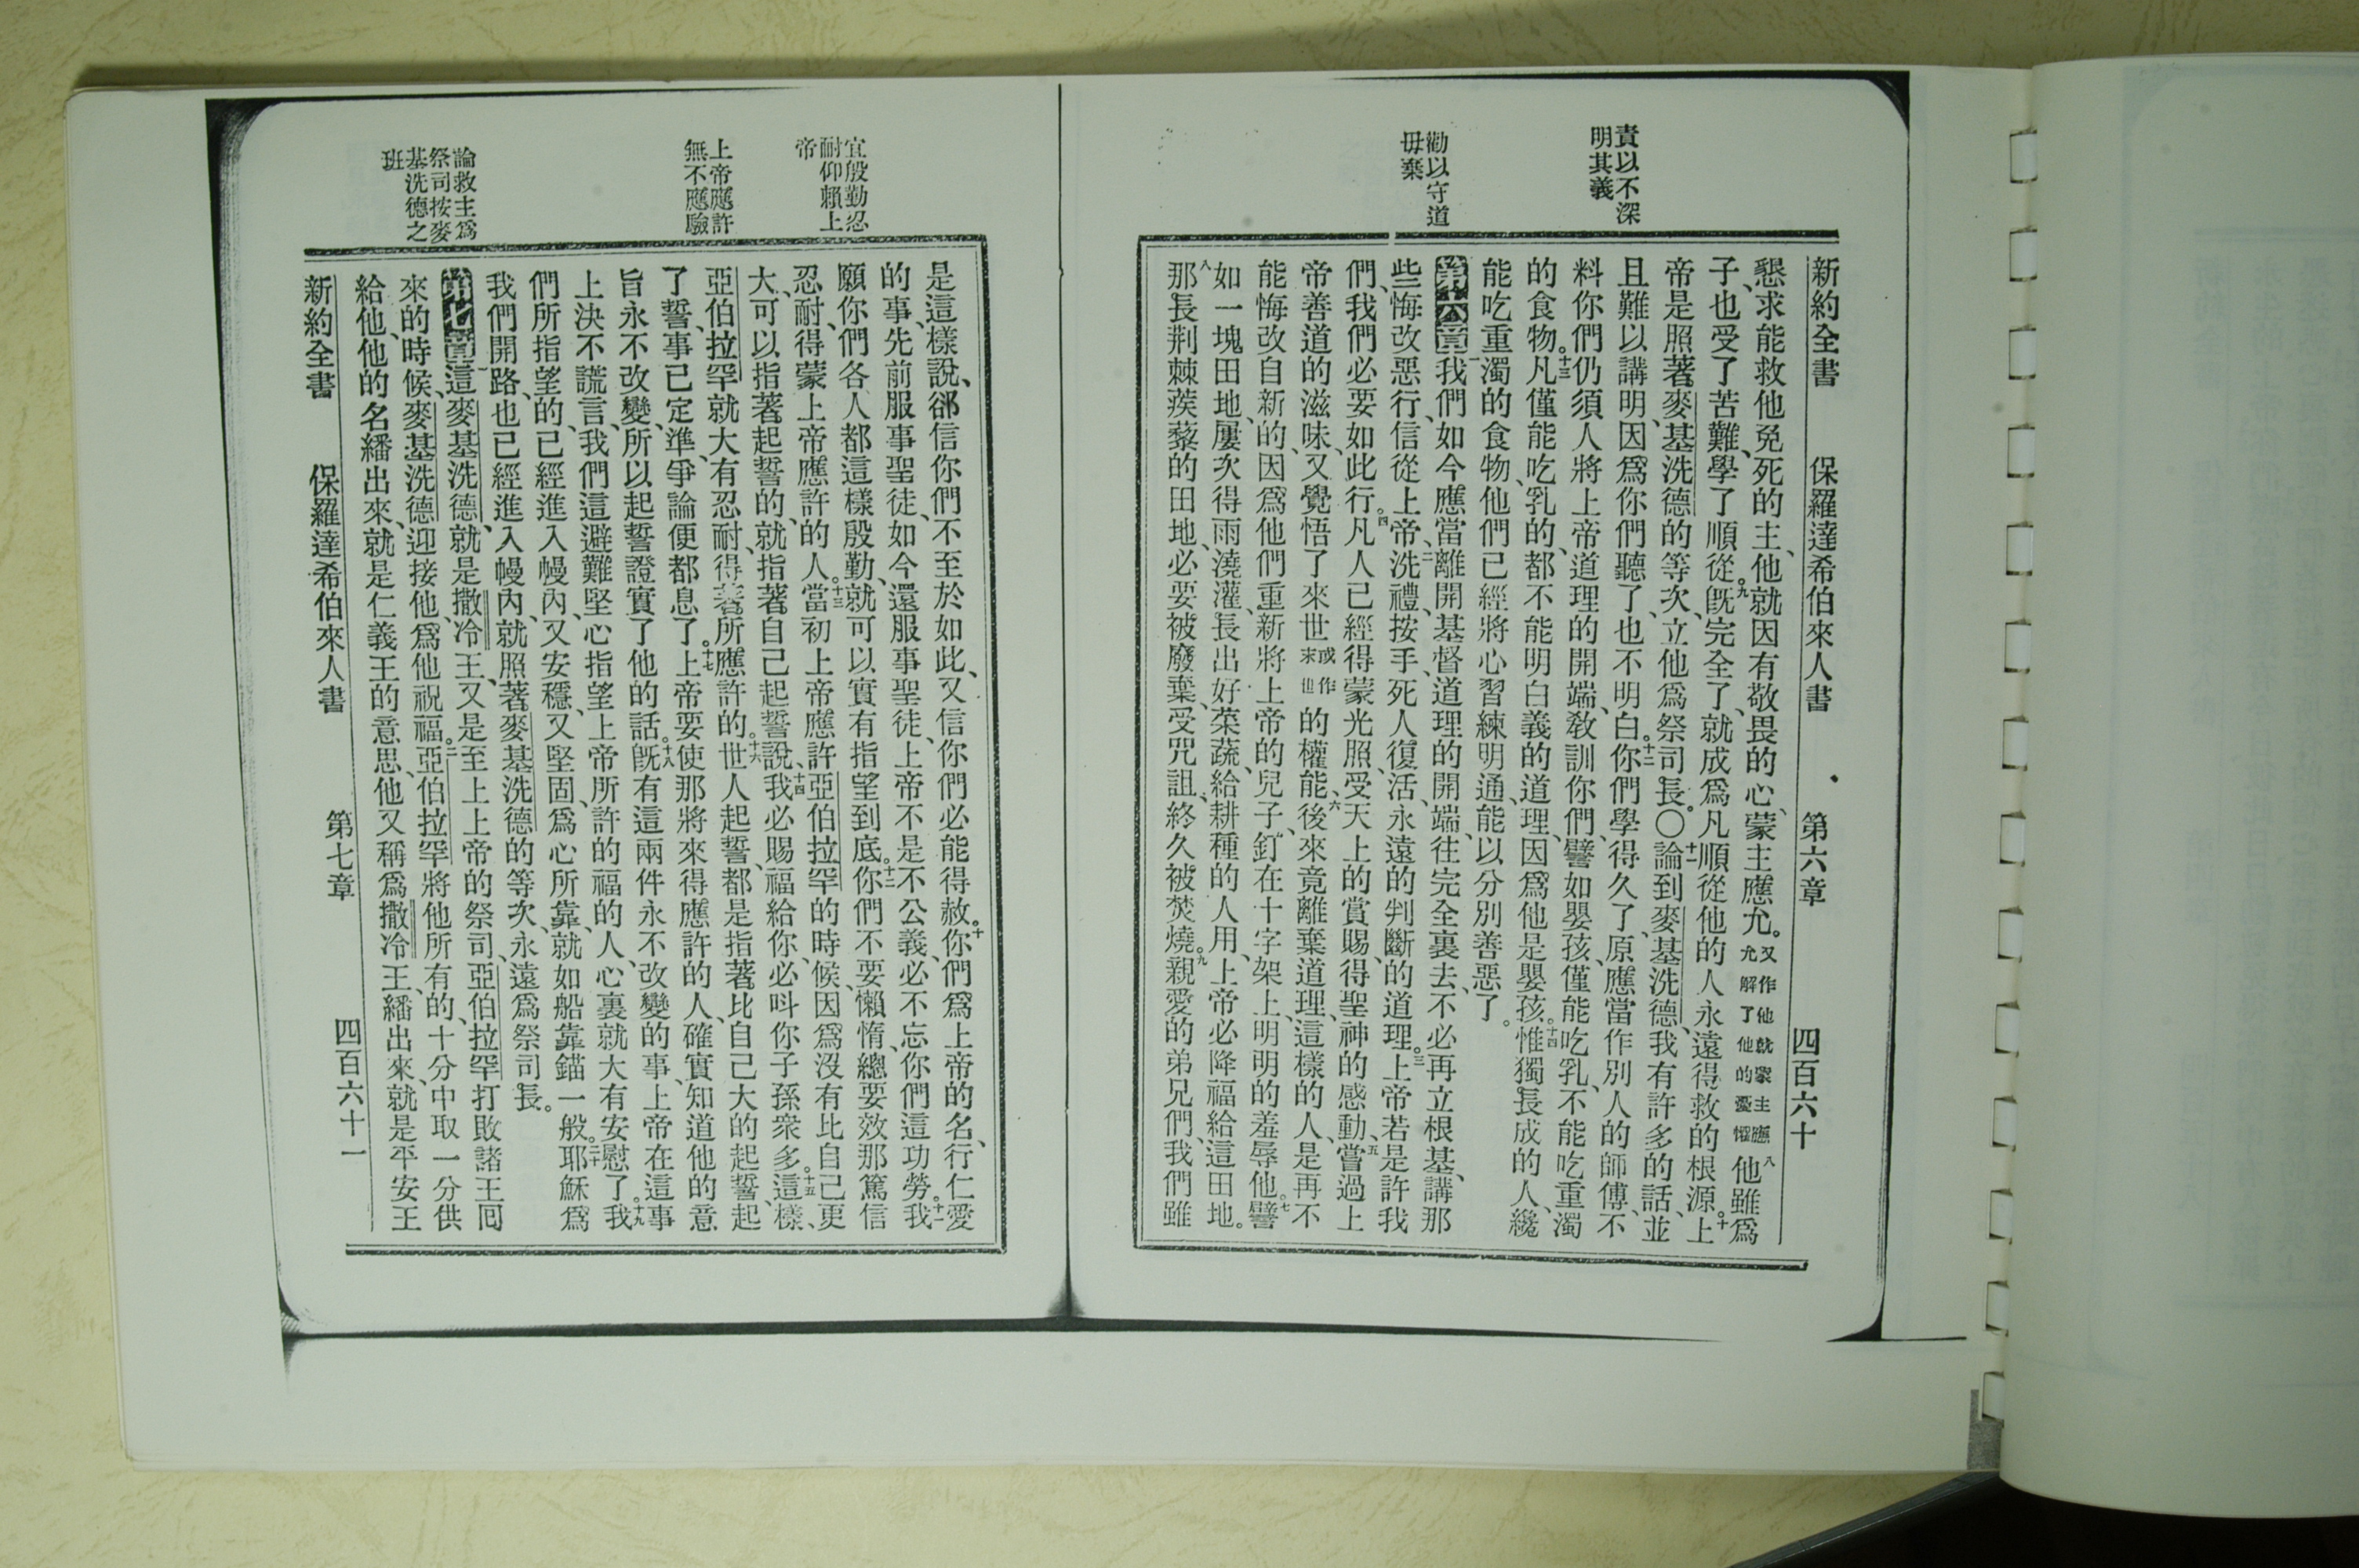 新約全書 保羅達希伯來人書 第六章 四百六十
責以不深
明其義
勸以守道
毋棄
懇求能救他免死的主、他就因有敬畏的心、蒙主應允。又作他就蒙主應允解了他的憂懼八他雖爲
子、也受了苦難、學了順從。九既完全了、就成爲凡順從他的人永遠得救的根源。十上
帝是照著麥基洗德的等次、立他爲祭司長。〇十一論到麥基洗德、我有許多的話、並
且難以講明、因爲你們聽了、也不明白。十二你們學得久了、原應當作別人的師傅、不
料你們仍須人將上帝道理的開端、敎訓你們、譬如嬰孩、僅能吃乳、不能吃重濁
的食物。十三凡僅能吃乳的、都不能明白義的道理、因爲他是嬰孩。十四惟獨長成的人、纔
能吃重濁的食物、他們已經將心習練明通、能以分別善惡了。
第六章一我們如今應當離開基督道理的開端、往完全裏去、不必再立根基、講那
些悔改惡行、信從上帝、二洗禮、按手、死人復活、永遠的判斷的道理。三上帝若是許我
們、我們必要如此行。四凡人已經得蒙光照、受天上的賞賜、得聖神的感動、五嘗過上
帝善道的滋味、又覺悟了來世或作末世的權能、六後來竟離棄道理、這樣的人、是再不
能悔改自新的、因爲他們重新將上帝的兒子、釘在十字架上、明明的羞辱他。七譬
如一塊田地、屢次得雨澆灌、長出好菜蔬、給耕種的人用、上帝必降福給這田地。
八那長荆棘蒺藜的田地、必要被廢棄、受咒詛、終久被焚燒。九親愛的弟兄們、我們雖
宜殷勤忍
耐仰賴上
帝
上帝應許
無不應驗
論救主爲
祭司按麥
基洗德之
班
是這樣說、郤信你們不至於如此、又信你們必能得救。十你們爲上帝的名、行仁愛
的事、先前服事聖徒、如今還服事聖徒、上帝不是不公義、必不忘你們這功勞。十一我
願你們各人都這樣殷勤、就可以實有指望到底。十二你們不要懶惰、總要效那篤信
忍耐、得蒙上帝應許的人。十三當初上帝應許亞伯拉罕的時候、因爲沒有比自己更
大、可以指著起誓的、就指著自己起誓說、十四我必賜福給你、必呌你子孫衆多。十五這樣、
亞伯拉罕就大有忍耐、得著所應許的。十六世人起誓、都是指著比自己大的起誓、起
了誓、事已定準、爭論便都息了。十七上帝要使那將來得應許的人、確實知道他的意
旨永不改變、所以起誓證實了他的話。十八既有這兩件永不改變的事、上帝在這事
上決不謊言、我們這避難堅心指望上帝所許的福的人、心裏就大有安慰了。十九我
們所指望的、已經進入幔內、又安穩、又堅固、爲心所靠、就如船靠錨一般。二十耶穌爲
我們開路、也已經進入幔內、就照著麥基洗德的等次、永遠爲祭司長。
第七章一這麥基洗德、就是撒冷王、又是至上上帝的祭司、亞伯拉罕打敗諸王囘
來的時候、麥基洗德迎接他、爲他祝福。二亞伯拉罕將他所有的、十分中取一分供
給他、他的名繙出來、就是仁義王的意思、他又稱爲撒冷王、繙出來、就是平安王
新約全書 保羅達希伯來人書 第七章 四百六十一